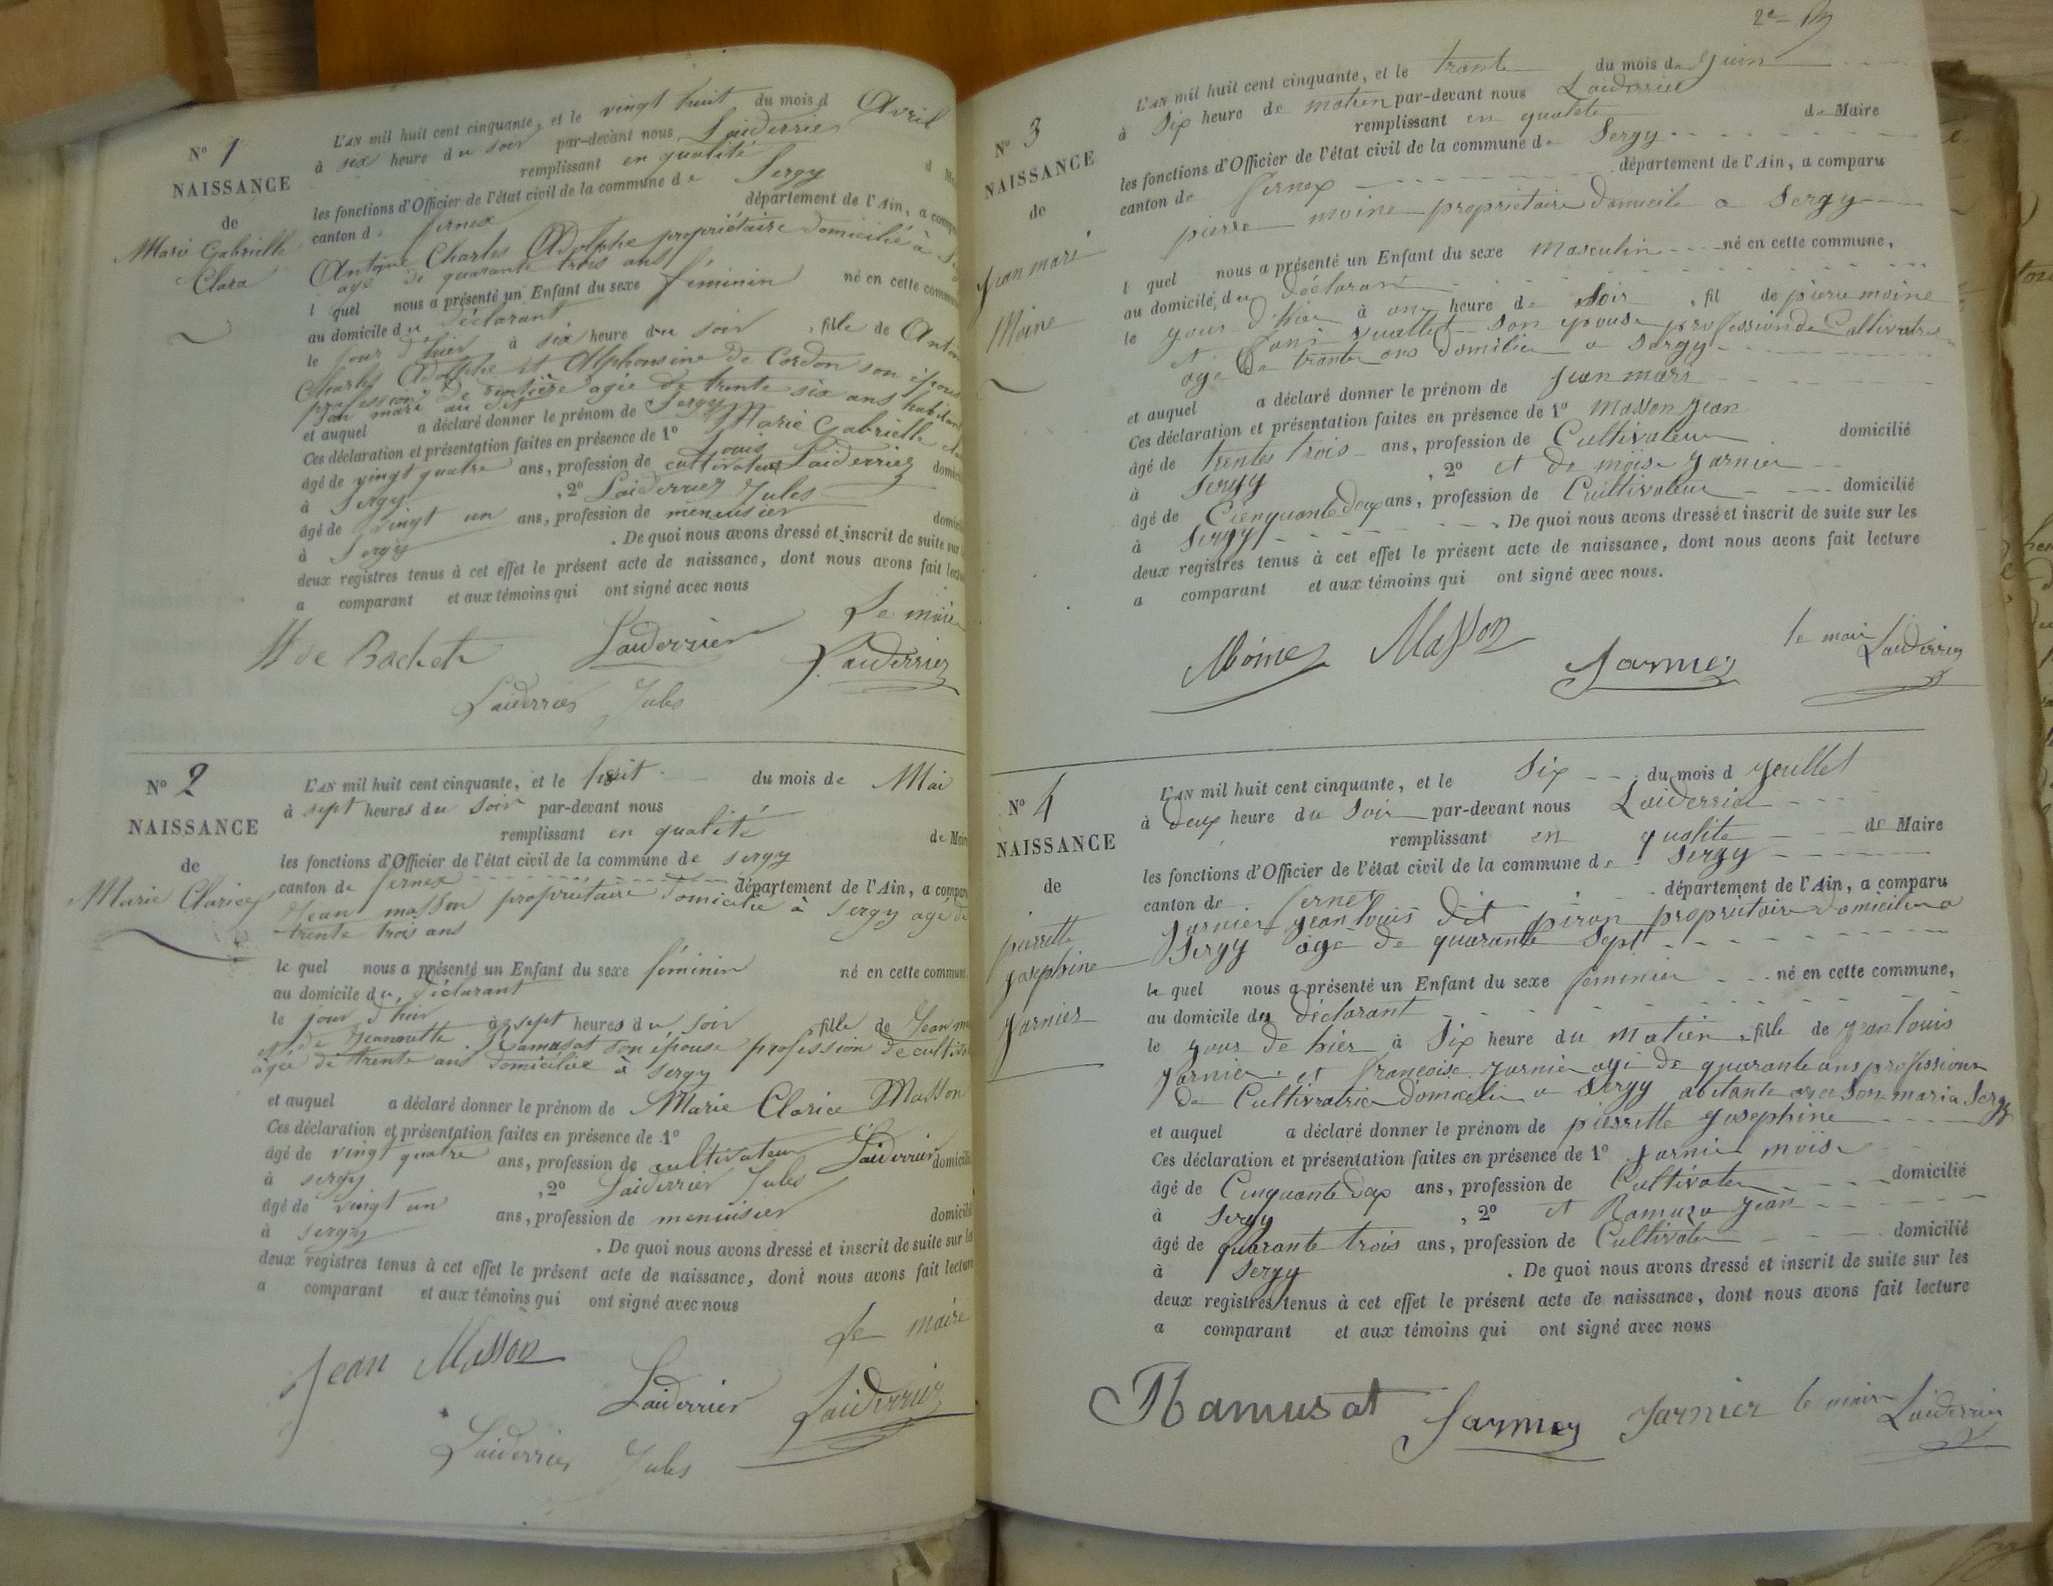 N° 1
NAISSANCE
de
Marie Gabrielle
Clara
L'AN mil huit cent cinquante, et le vingt huit du mois d Avril
à six heure du soir par-devant nous Laiderrier
remplissant en qualité d
les fonctions d'Officier de l'état civil de la commune de Sergy
canton d fernex département de l'Ain, a comp
Antoine Charles Adolphe propriétaire domicilié à
age de quarante trois ans
l quel nous a présenté un Enfant du sexe féminin né en cette commune
au domicile du déclarant
le jour d'hier à six heure du soir , fille de Antoin
Charles Adolphe et Alphonsine de Cordon son épouse
profession de rentière agée de trente six ans habitant
son mari au dit Sergy
et auquel a déclaré donner le prénom de Marie Gabrielle
Ces déclaration et présentation faites en présence de 1° Louis Laiderrier
âgé de vingt quatre ans, profession de cultivateur domici
à Sergy , 2° Laiderrier Jules
âgé de vingt un ans, profession de menuisier domici
à Sergy . De quoi nous avons dressé et inscrit de suite sur
deux registres tenus à cet effet le présent acte de naissance, dont nous avons fait lectu
a comparant et aux témoins qui ont signé avec nous
Le maire
de Bachet Laiderrier Laiderrier
Laiderrier Jules
N° 2
NAISSANCE
de
Marie Clarice
L'AN mil huit cent cinquante, et le huit du mois de Mai
à sept heures du soir par-devant nous
remplissant en qualité de Maire
les fonctions d'Officier de l'état civil de la commune de sergy
canton de fernex département de l'Ain, a compar
Jean masson propriétaire domicilié à sergy agé de
trente trois ans
le quel nous a présenté un Enfant du sexe féminin né en cette commune
au domicile du déclarant
le jour d'hier à sept heures du soir fille de Jean m
et de Jeannette Ramusat son épouse profession de cultiv
agée de trente ans domicilié à sergy
et auquel a déclaré donner le prénom de Marie Clarice Masson
Ces déclaration et présentation faites en présence de 1° Laiderrier
âgé de vingt quatre ans, profession de cultivateur domicilié
à sergy , 2° Laiderrier Jules
âgé de vingt un ans, profession de menuisier domicilié
à sergy . De quoi nous avons dressé et inscrit de suite sur le
deux registres tenus à cet effet le présent acte de naissance, dont nous avons fait lecture
a comparant et aux témoins qui ont signé avec nous
Le maire
Jean Masson Laiderrier Laiderrier
Laiderrier Jules
2e
N° 3
NAISSANCE
de
Jean mari
Moine
L'AN mil huit cent cinquante, et le trante du mois de Juin
à Six heure de matien par-devant nous Laiderrier
remplissant en qualité de Maire
les fonctions d'Officier de l'état civil de la commune de Sergy
canton de fernex département de l'Ain, a comparu
pierre moine propriétaire domicile a Sergy
l quel nous a présenté un Enfant du sexe Masculin né en cette commune,
au domicile du déclarant
le jour d'hier à heure de Soir , fil de pierre moine
et vuallet son epouse profession de Cultivatr
age de trante ans domicilie a Sergy
et auquel a déclaré donner le prénom de Jean mari
Ces déclaration et présentation faites en présence de 1° Masson Jean
âgé de trentes trois ans, profession de Cultivateur domicilié
à Sergy , 2° et de moise Jarnier
âgé de Cienquante deux ans, profession de Cultivateur domicilié
à Sergy . De quoi nous avons dressé et inscrit de suite sur les
deux registres tenus à cet effet le présent acte de naissance, dont nous avons fait lecture
a comparant et aux témoins qui ont signé avec nous.
Moine Masson Jarnier le mair Laiderrier
N° 4
NAISSANCE
de
pierrette
Josephine
Jarnier
L'AN mil huit cent cinquante, et le Six du mois d Jeullet
à deux heure du Soir par-devant nous Laiderrier
remplissant en qualite de Maire
les fonctions d'Officier de l'état civil de la commune de Sergy
canton de fernex département de l'Ain, a comparu
Jarnier Jean louis dit piron propriétair domicile a
Sergy age de quarante Sept
le quel nous a présenté un Enfant du sexe feminin né en cette commune,
au domicile du déclarant
le Jour de hier à Six heure du Matien , fille de Jean louis
Jarnier et françoise Jarnier age de quarante ans profission
de Cultivatrice domicilie a Sergy abitante avec Son mari a Sergy
et auquel a déclaré donner le prénom de pierrette Josephine
Ces déclaration et présentation faites en présence de 1° Jarnier moise
âgé de Cinquante deux ans, profession de Cultivateu domicilié
à Sergy , 2° et Ramuza Jean
âgé de quarante trois ans, profession de Cultivateu domicilié
à Sergy . De quoi nous avons dressé et inscrit de suite sur les
deux registres tenus à cet effet le présent acte de naissance, dont nous avons fait lecture
a comparant et aux témoins qui ont signé avec nous
Ramusat Jarnier Jarnier le mair Laiderrier